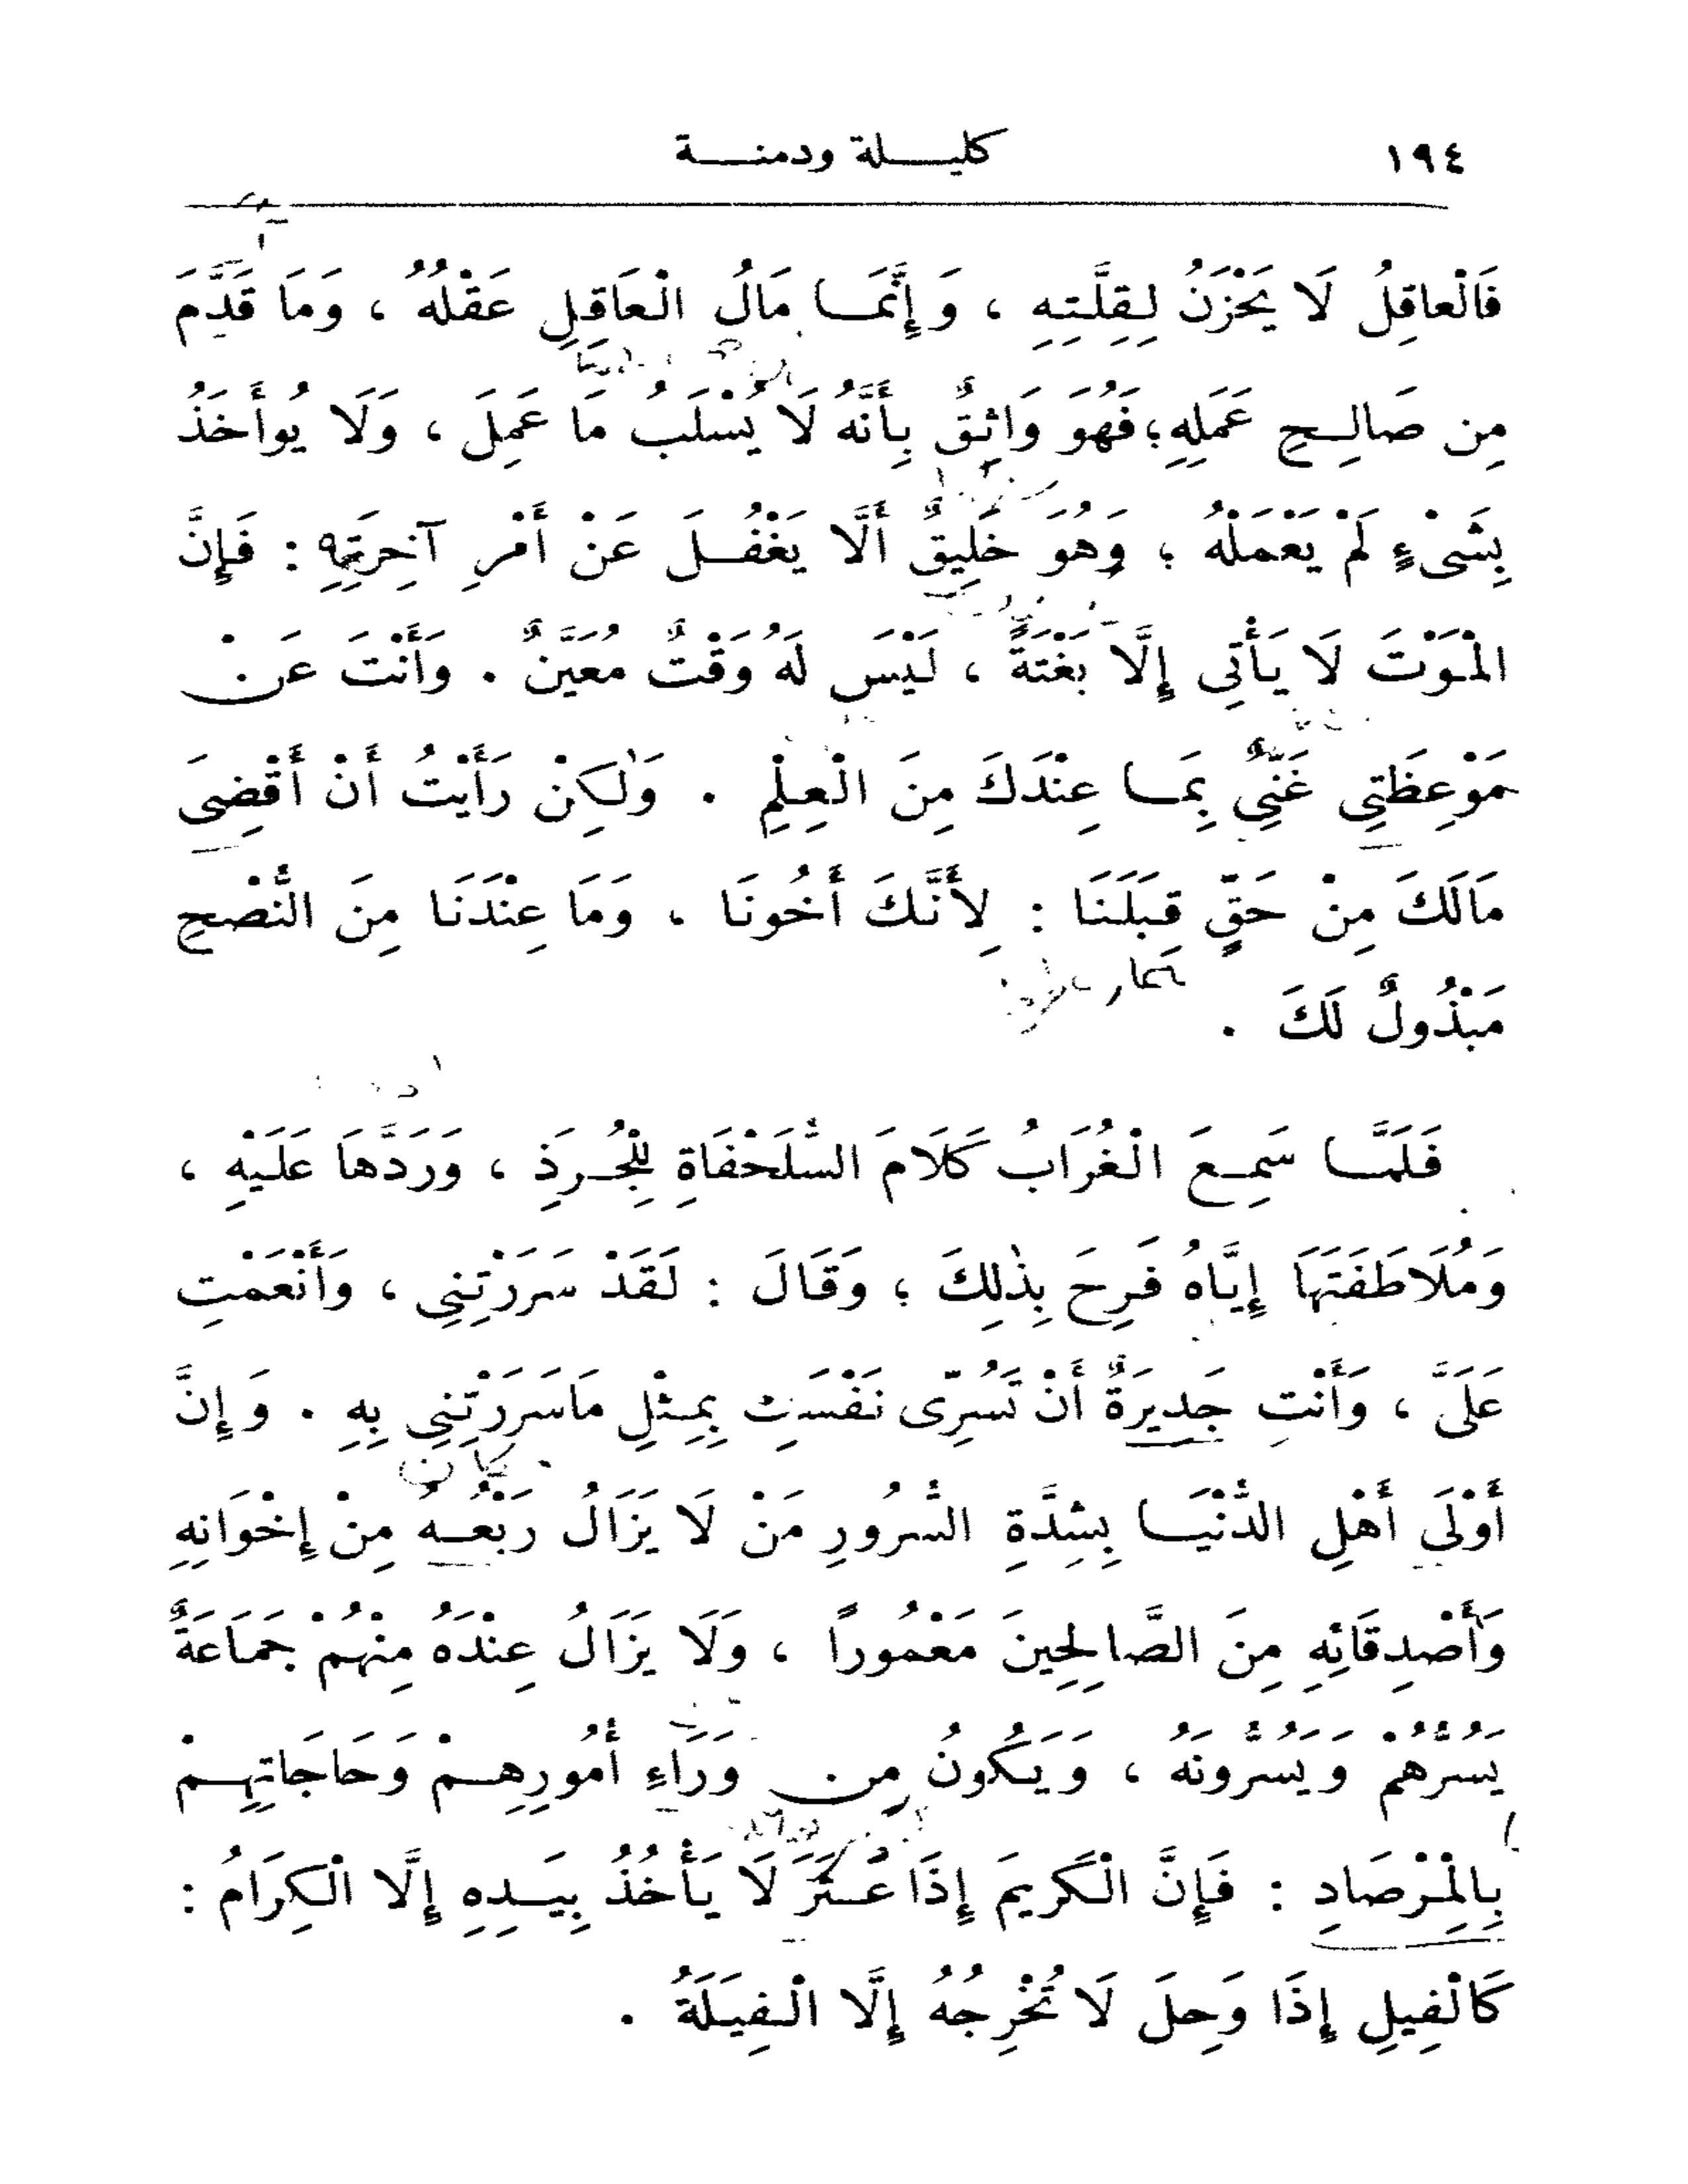 ١٩٤ كليلة ودمنة
فَالْعاقِلُ لَا يَحْزَنُ لِقِلَّتِهِ ، وَإِنَّمَا مَالُ الْعَاقِلِ عَقْلُهُ ، وَمَا قَدَّمَ
مِن صَالِحِ عَمَلِهِ؛ فَهُوَ وَاثِقٌ بِأَنَّهُ لَا يُسْلَبُ مَا عَمِلَ ، وَلَا يُوأَخَذُ
بِشَىْءٍ لَمْ يَعْمَلْهُ ؛ وَهُوَ خَلِيقٌ أَلَّا يَغْفُلَ عَنْ أَمْرِ آخِرَتِهِ : فَإِنَّ
الْمَوْتَ لَا يَأْتِى إِلَّا بَغْتَةً ، لَيْسَ لَهُ وَقْتٌ مُعَيَّنٌ . وَأَنْتَ عَنْ
مَوْعِظَتِى غَنِّىٌ بِمَا عِنْدَكَ مِنَ الْعِلْمِ . وَلٰكِنْ رَأَيْتُ أَنْ أَقْضِىَ
مَالَكَ مِنْ حَقٍّ قِبَلَنَا : لِأَنَّكَ أَخُونَا ، وَمَا عِنْدَنَا مِنَ النُّصْحِ
مَبْذُولٌ لَكَ .
فَلَمَّا سَمِعَ الْغُرَابُ كَلَامَ السُّلَحْفَاةِ لِلْجُرَذِ ، وَرَدَّهَا عَلَيْهِ ،
وَمُلَاطَفَتَهَا إِيَّاهُ فَرِحَ بِذٰلِكَ ؛ وَقَالَ : لَقَدْ سَرَرْتِنِى ، وَأَنْعَمْتِ
عَلَىَّ ، وَأَنْتِ جَدِيرَةٌ أَنْ تَسُرِّى نَفْسَكِ بِمِثْلِ مَاسَرَرْتِنِى بِهِ . وَإِنَّ
أَوْلَى أَهْلِ الدُّنْيَا بِشِدَّةِ السُّرُورِ مَنْ لَا يَزَالُ رَبْعُهُ مِنْ إِخْوَانِهِ
وَأَصْدِقَائِهِ مِنَ الصَّالِحِينَ مَعْمُوراً ، وَلَا يَزَالُ عِنْدَهُ مِنْهُمْ جَمَاعَةٌ
يَسُرُّهُمْ وَيَسُرُّونَهُ ، وَيَكُونُ مِن وَرَاءِ أُمُورِهِمْ وَحَاجَاتِهِمْ
بِالْمِرْصَادِ : فَإِنَّ الْكَرِيمَ إِذَا عَثَرَ لَا يَأْخُذُ بِيَدِهِ إِلَّا الْكِرَامُ :
كَالْفِيلِ إِذَا وَحِلَ لَا تُخْرِجُهُ إِلَّا الْفِيَلَةُ .